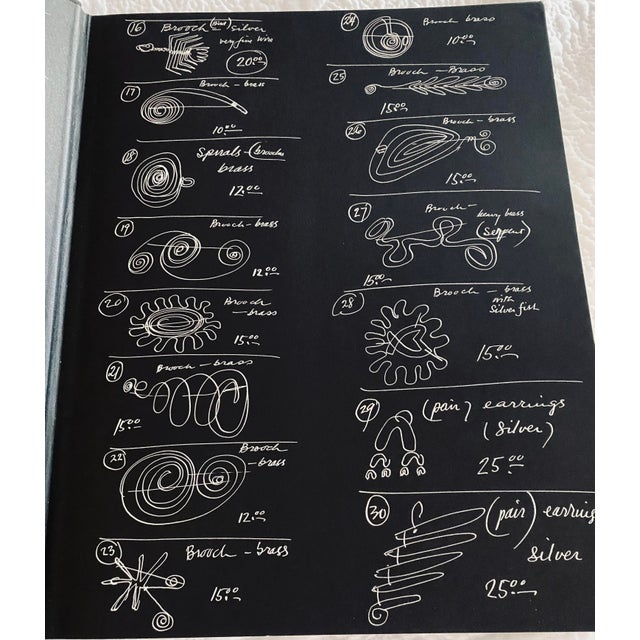 16 Brooch - (Bird) silver
very fine wire
20.00
17 Brooch - brass
10.00
18 Spirals - (brooches
brass
12.00
19 Brooch - brass
12.00
20 Brooch
- brass
15.00
21 Brooch - brass
15.00
22 Brooch
- brass
12.00
23 Brooch - brass
15.00
24 Brooch brass
10.00
25 Brooch - Brass
15.00
26 Brooch - brass
15.00
27 Brooch -
heavy brass
(serpent)
15.00
28 Brooch - brass
with
silver fish
15.00
29 (pair) earrings
(silver)
25.00
30 (pair) earring
silver
25.00